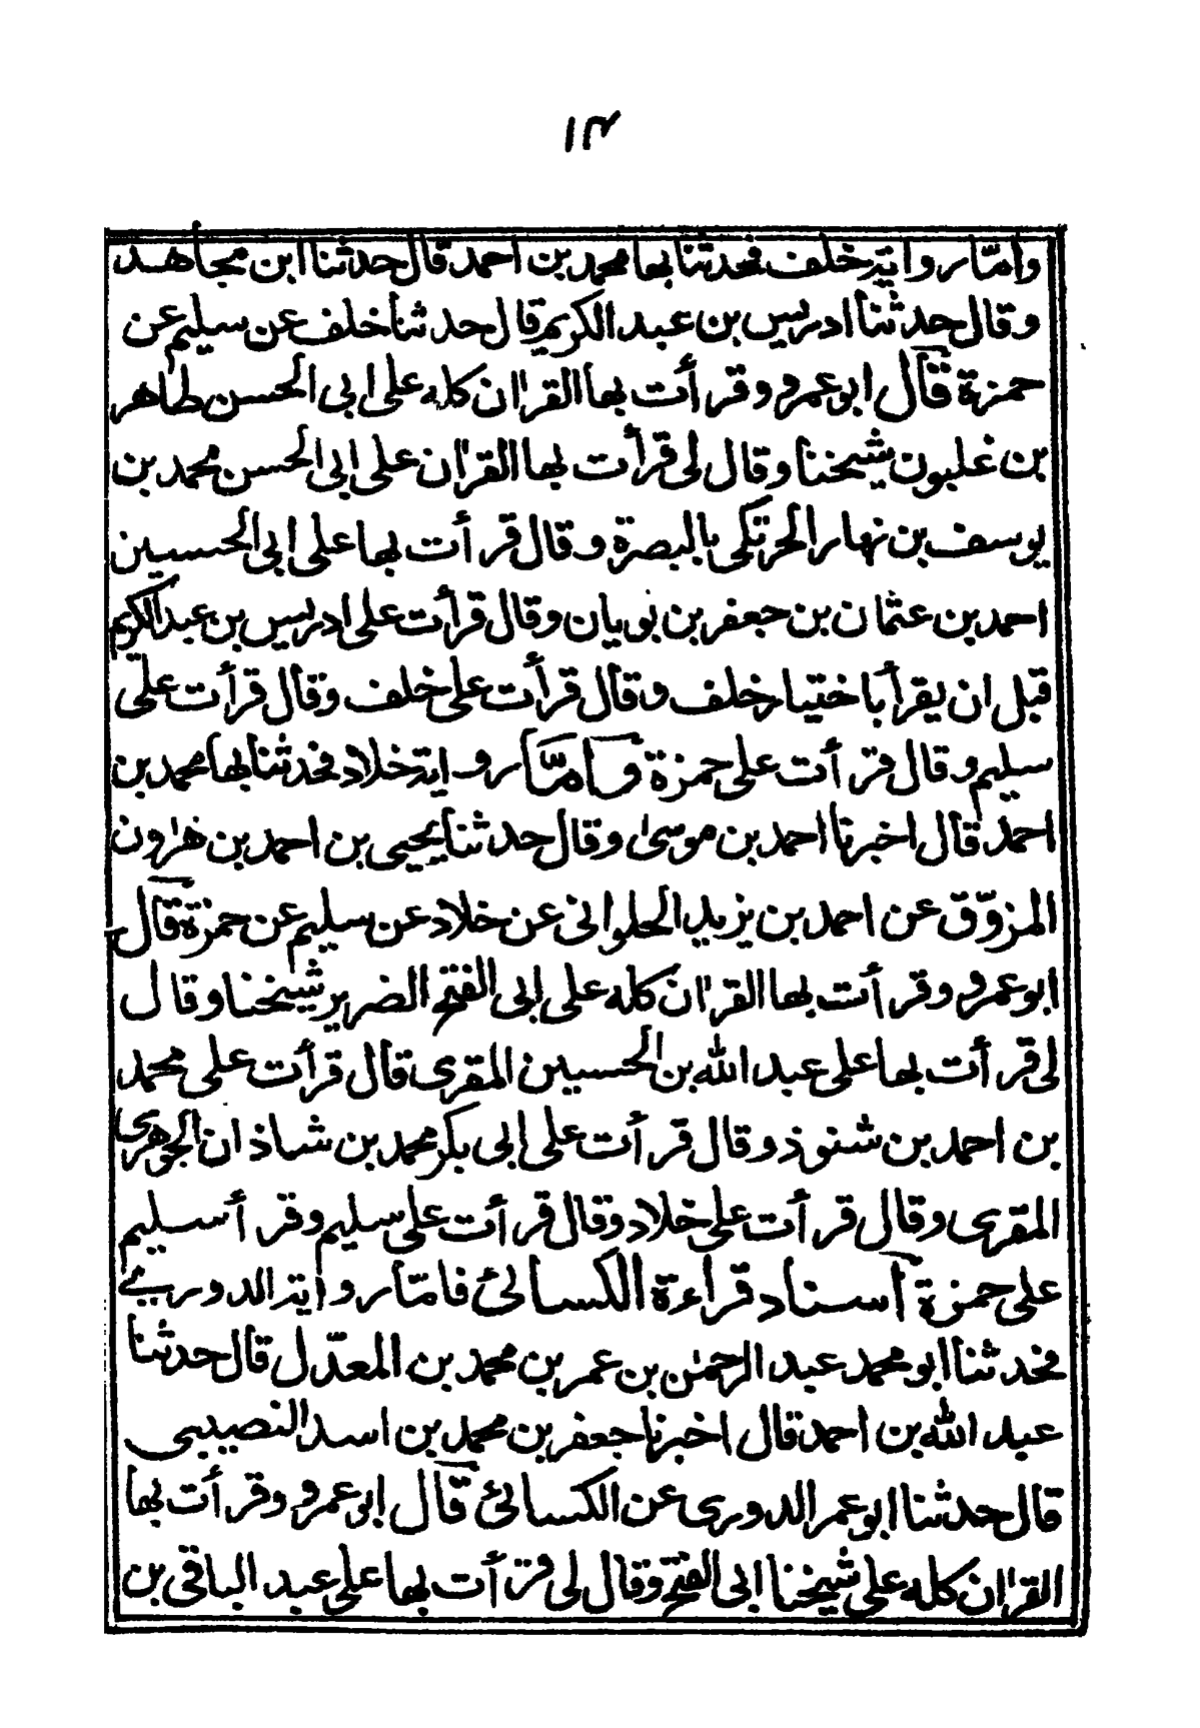 ١٣
وأمّا رواية خلف فحدثنا بها محمد بن احمد قال حدثنا ابن مجاهد
وقال حدثنا ادريس بن عبد الكريم قال حدثنا خلف عن سليم عن
حمزة قال ابو عمرو وقرأت بها القراٰن كله على ابى الحسن طاهر
بن غلبون شيخنا وقال لى قرأت بها القراٰن على ابى الحسن محمد بن
يوسف بن نهار الحرتكى بالبصرة وقال قرأت بها على ابى الحسين
احمد بن عثمان بن جعفر بن بويان وقال قرأت على ادريس بن عبد الكريم
قبل ان يقرأ باختيار خلف وقال قرأت على خلف وقال قرأت على
سليم وقال قرأت على حمزة وامّا رواية خلاد فحدثنا بها محمد بن
احمد قال اخبرنا احمد بن موسىٰ وقال حدثنا يحيى بن احمد بن هٰرون
المزوّق عن احمد بن يزيد الحلوانى عن خلاد عن سليم عن حمزة قال
ابو عمرو وقرأت بها القراٰن كله على ابى الفتح الضرير شيخنا وقال
لى قرأت بها على عبد الله بن الحسين المقرى قال قرأت على محمد
بن احمد بن شنوذ وقال قرأت على ابى بكر محمد بن شاذان الجوهرى
المقرى وقال قرأت على خلاد وقال قرأت على سليم وقرأ سليم
على حمزة اسناد قراءة الكسائئ فامّا رواية الدورىّ
فحدثنا ابو محمد عبد الرحمٰن بن عمر بن محمد بن المعدّل قال حدثنا
عبد الله بن احمد قال اخبرنا جعفر بن محمد بن اسد النصيبى
قال حدثنا ابو عمر الدورى عن الكسائئ قال ابو عمرو وقرأت بها
القراٰن كله على شيخنا ابى الفتح وقال لى قرأت بها على عبد الباقى بن